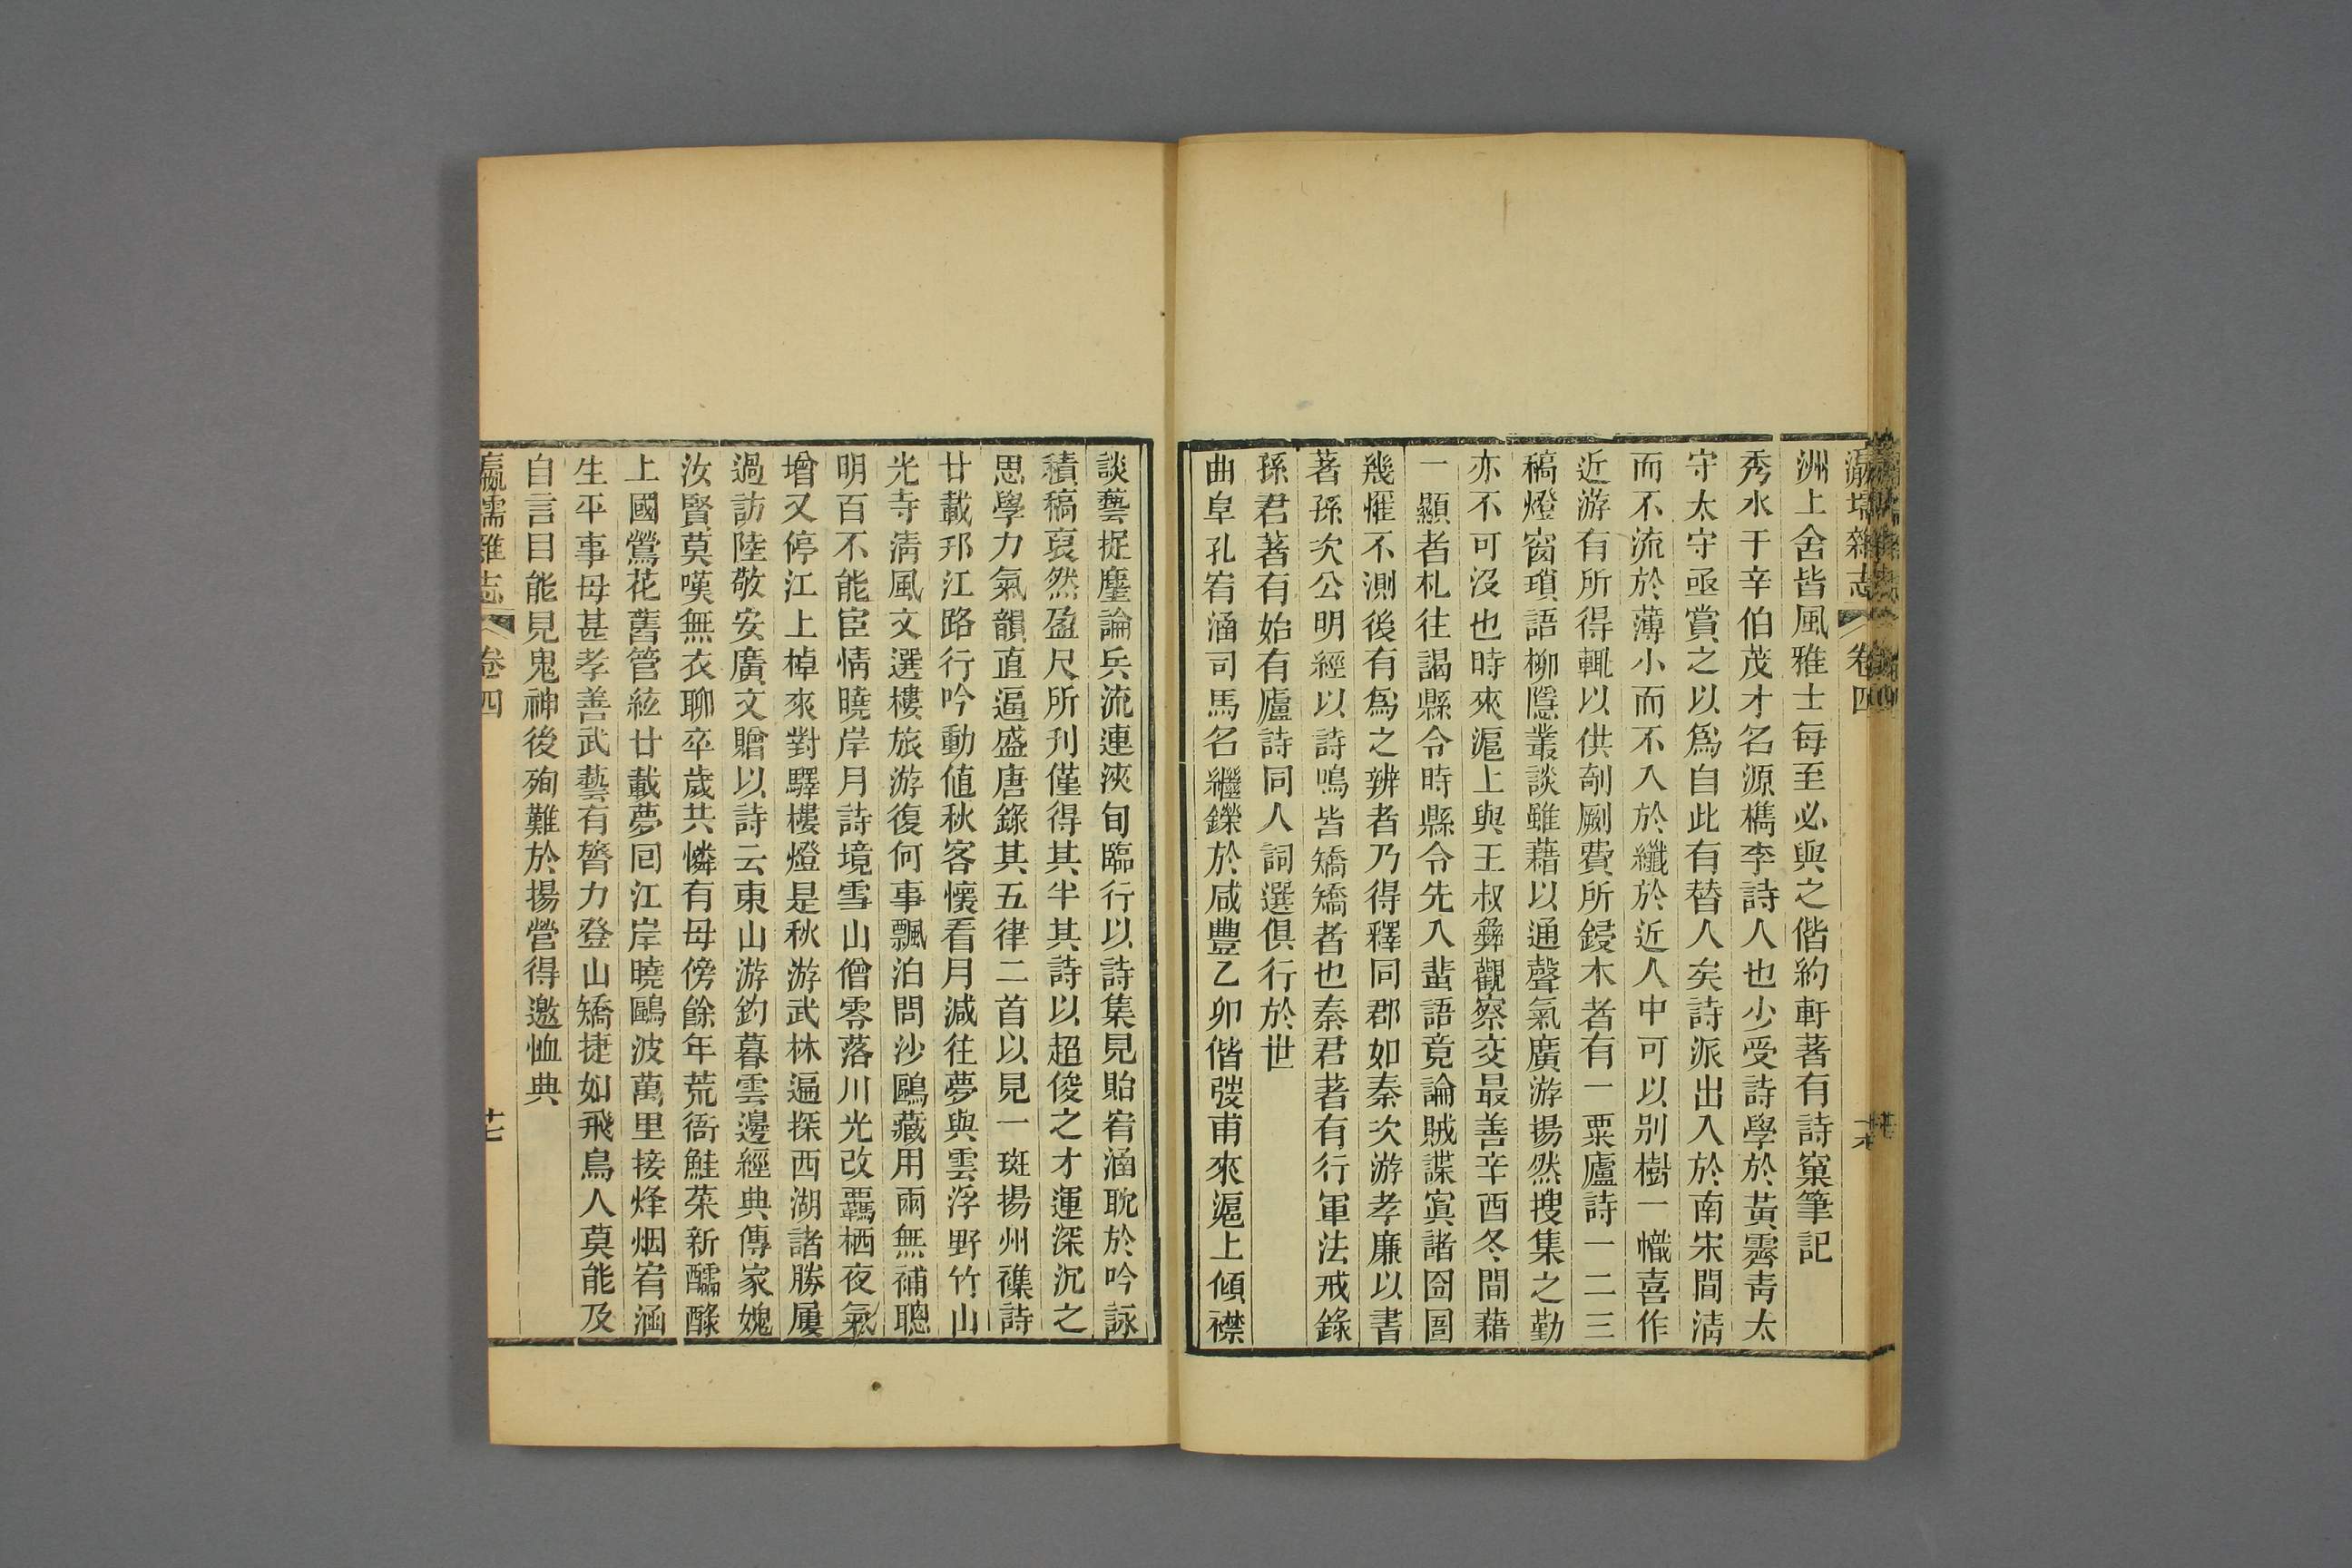 瀛壖雜志 卷四
洲上舍皆風雅士每至必與之偕約軒著有詩窠筆記
秀水于辛伯茂才名源檇李詩人也少受詩學於黃霽靑太
守太守亟賞之以爲自此有替人矣詩派出入於南宋間淸
而不流於薄小而不入於纖於近人中可以别樹一幟喜作
近游有所得輒以供剞劂費所鋟木者有一粟廬詩一二三
稿燈窗瑣語柳隱叢談雖藉以通聲氣廣游揚然搜集之勤
亦不可沒也時來滬上與王叔彝觀察交最善辛酉冬間藉
一顯者札往謁縣令時縣令先入蜚語竟論賊諜寘諸囹圄
幾罹不測後有爲之辨者乃得釋同郡如秦次游孝廉以書
著孫次公明經以詩鳴皆矯矯者也秦君著有行軍法戒錄
孫君著有始有廬詩同人詞選俱行於世
曲阜孔宥涵司馬名繼鑅於咸豐乙卯偕弢甫來滬上傾襟
談藝捉麈論兵流連浹旬臨行以詩集見貽宥涵耽於吟詠
積稿裒然盈尺所刋僅得其半其詩以超俊之才運深沉之
思學力氣韻直逼盛唐錄其五律二首以見一斑揚州襍詩
廿載邗江路行吟動値秋客懷看月減往夢與雲浮野竹山
光寺淸風文選樓旅游復何事飄泊問沙鷗藏用兩無補聰
明百不能宦情曉岸月詩境雪山僧零落川光改羈栖夜氣
增又停江上棹來對驛樓燈是秋游武林遍探西湖諸勝屢
過訪陸敬安廣文贈以詩云東山游釣暮雲邊經典傳家媿
汝賢莫嘆無衣聊卒歲共憐有母傍餘年荒衙鮭菜新醹醁
上國鶯花舊管絃廿載夢囘江岸曉鷗波萬里接烽烟宥涵
生平事母甚孝善武藝有膂力登山矯捷如飛鳥人莫能及
自言目能見鬼神後殉難於揚營得邀恤典
瀛壖雜志 卷四 廿七